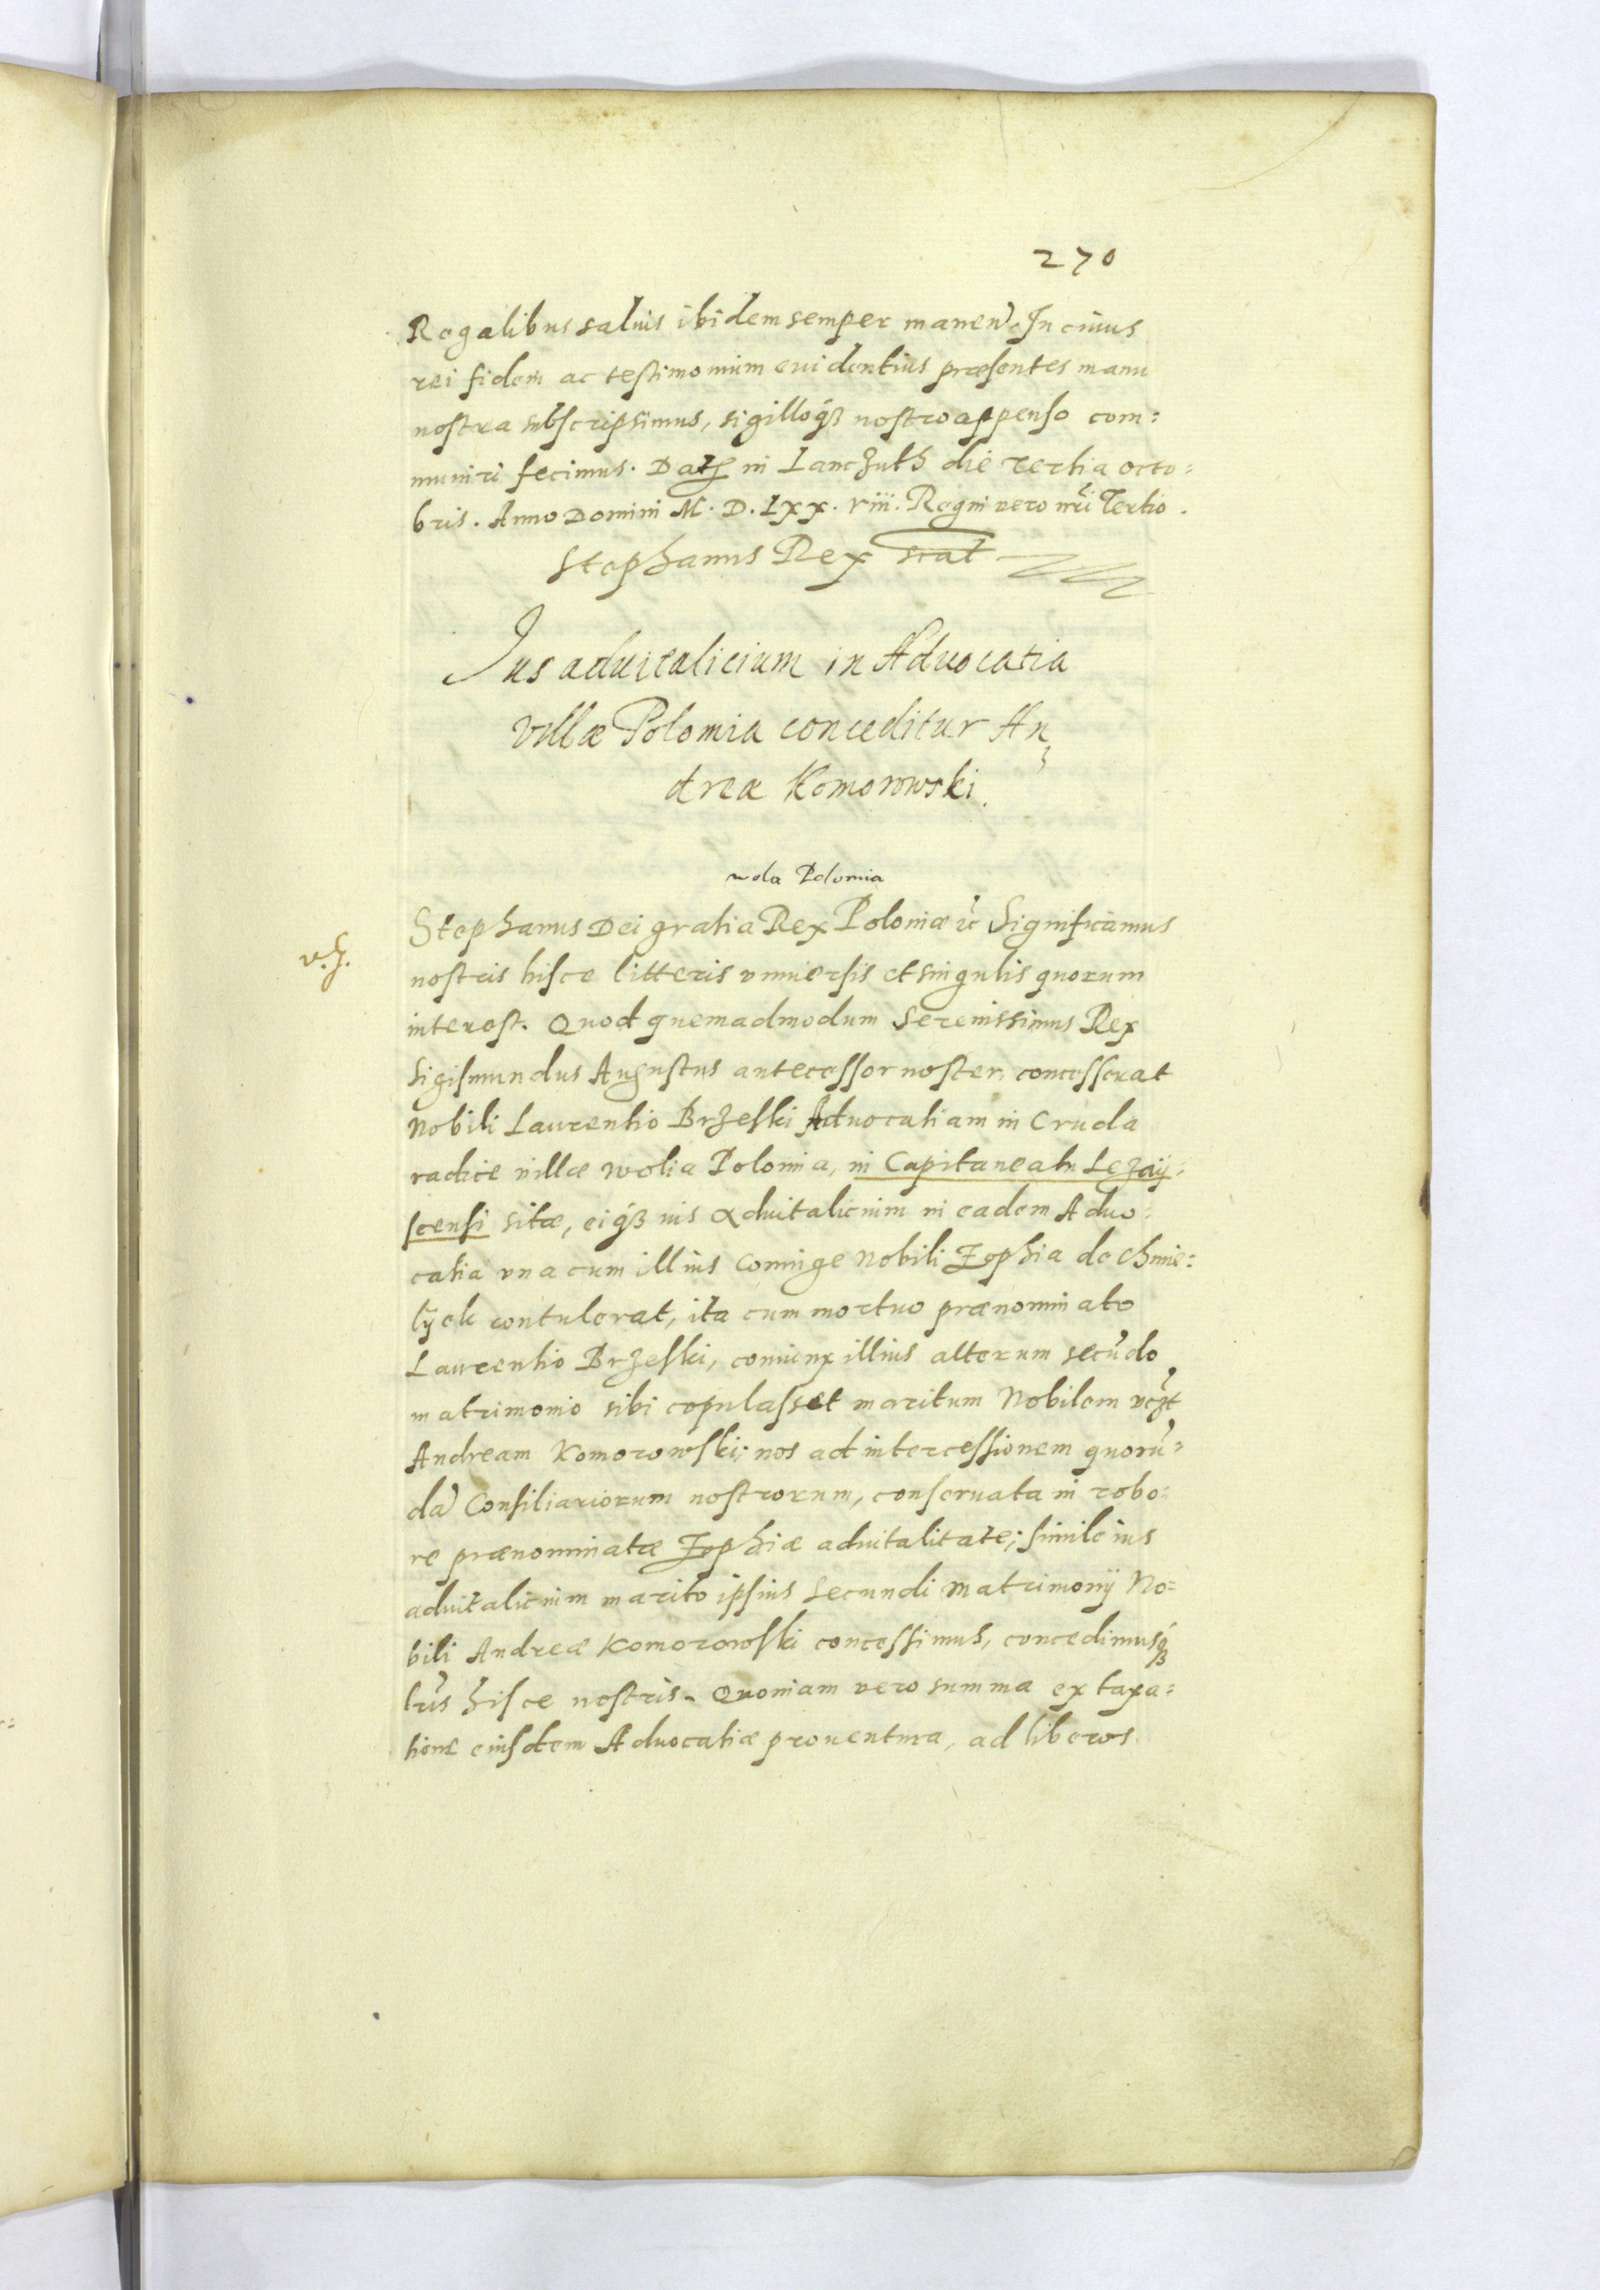 270
Regalibus saluis ibidem semper manen̄. In cuius
rei fidem ac testimonium euidentius præsentes manu
nostra subscripsimus, sigilloq́ꝫ nostro appenso com:
muniri fecimus. Dat̄ in Lanczuth die tertia octo:
bris. Anno Domini M. D. Lxx. viii. Regni vero nr̄i Tertio.
Stephanus Rex
Jus aduitalicium in Aduocatia
Villæ Polomia conceditur An
dreæ Komorowski.
wola Polomia
Stephanus Dei gratia Rex Poloniæ ꝛc̄ Significamus
nostris hisce litteris vniuersis et singulis quorum
interest. Quod quemadmodum Serenissimus Rex
Sigismundus Augustus antecessor noster, concesserat
Nobili Laurentio Brzeski Aduocatiam in Cruda
radice villæ wolia Polomia, in Capitaneatu Lezay:
scensi sitæ, eiq́ꝫ ius aduitalicium in eadem Aduo:
catia vna cum illius coniuge Nobili Zophia de Chmie:
lyek contulerat, ita cum mortuo prænominato
Laurentio Brzeski, coniunx illius alterum secūdo
matrimonio sibi copulasset maritum Nobilem
Andream Komorowski; nos ad intercessionem quorū:
dā Consiliariorum nostrorum, conseruata in robo:
re prænominatæ Zophiæ aduitalitate; simile ius
aduitalicium marito ipsius secundi matrimonij No:
bili Andreæ Komorowski concessimus, concedimusq́ꝫ
lr̄is hisce nostris. Quoniam vero summa ex taxa:
tione eiusdem Aduocatiæ prouentura, ad liberos